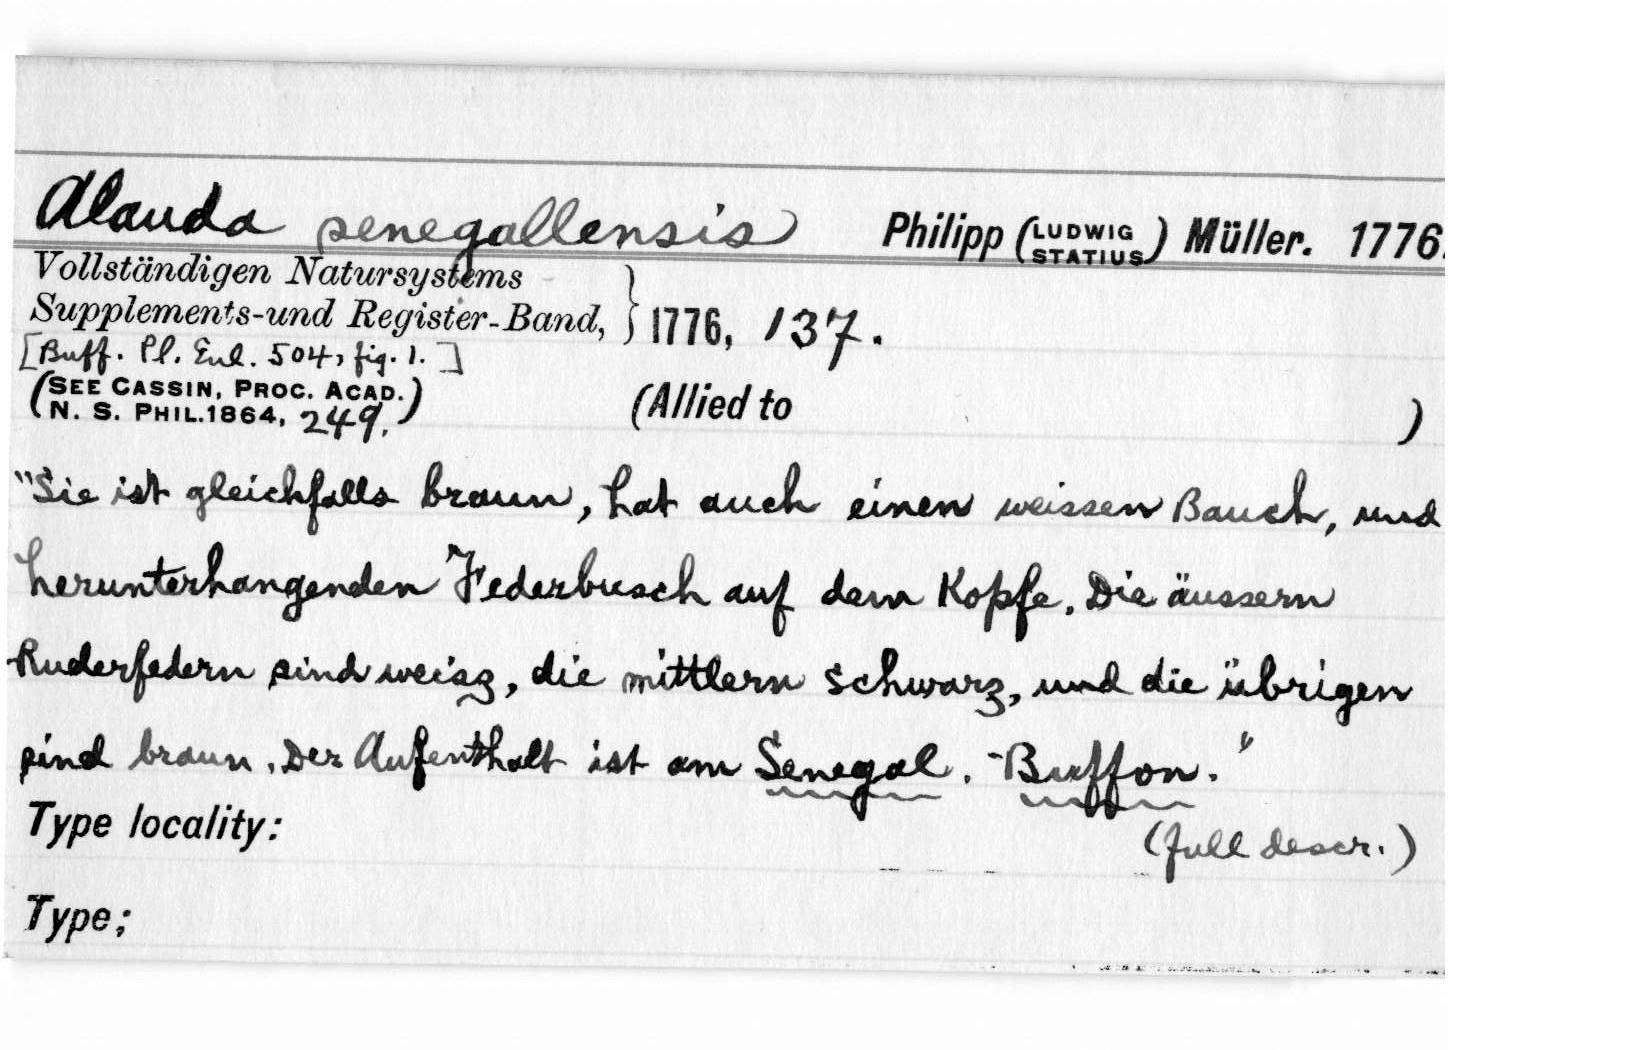 Alauda senegallensis Philipp (LUDWIG STATIUS) Müller. 1776.
Vollständigen Natursystems
Supplements-und Register-Band, } 1776, 137.
[Buff. Pl. Enl. 504, fig. 1.]
(SEE CASSIN, PROC. ACAD.
N. S. PHIL. 1864, 249.) (Allied to )
"Sie ist gleichfalls braun, hat auch einen weissen Bauch, und
herunterhangenden Federbusch auf dem Kopfe. Die äussern
Ruderfedern sind weisz, die mittlern schwarz, und die übrigen
sind braun. Der Aufenthalt ist am Senegal. - Buffon."
Type locality: (full descr.)
Type;